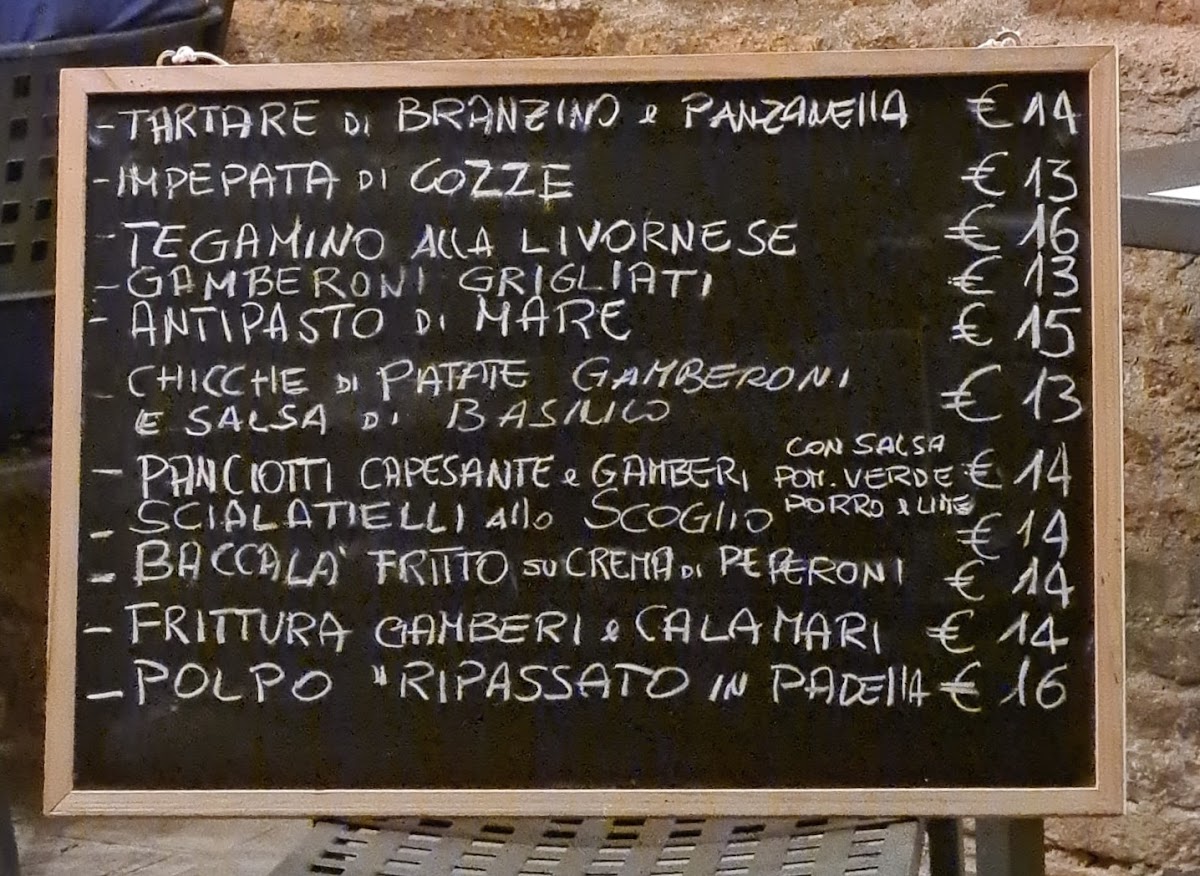 - TARTARE DI BRANZINO e PANZANEllA € 14
- IMPEPATA DI COZZE € 13
- TEGAMINO AllA LIVORNESE € 16
- GAMBERONI GRIGLIATI € 13
- ANTIPASTO DI MARE € 15
- CHICCHE DI PATATE GAMBERONI
E SALSA DI BASILICO € 13
- PANCIOTTI CAPESANTE e GAMBERI CON SALSA POM. VERDE PORRO e LIME € 14
- SCIALATIELLI Allo SCOGlIO € 14
- BACCALA' FRITTO SU CREMA DI PEPERONI € 14
- FRITTURA GAMBERI e CALAMARI € 14
- POLPO "RIPASSATO IN PADEllA € 16